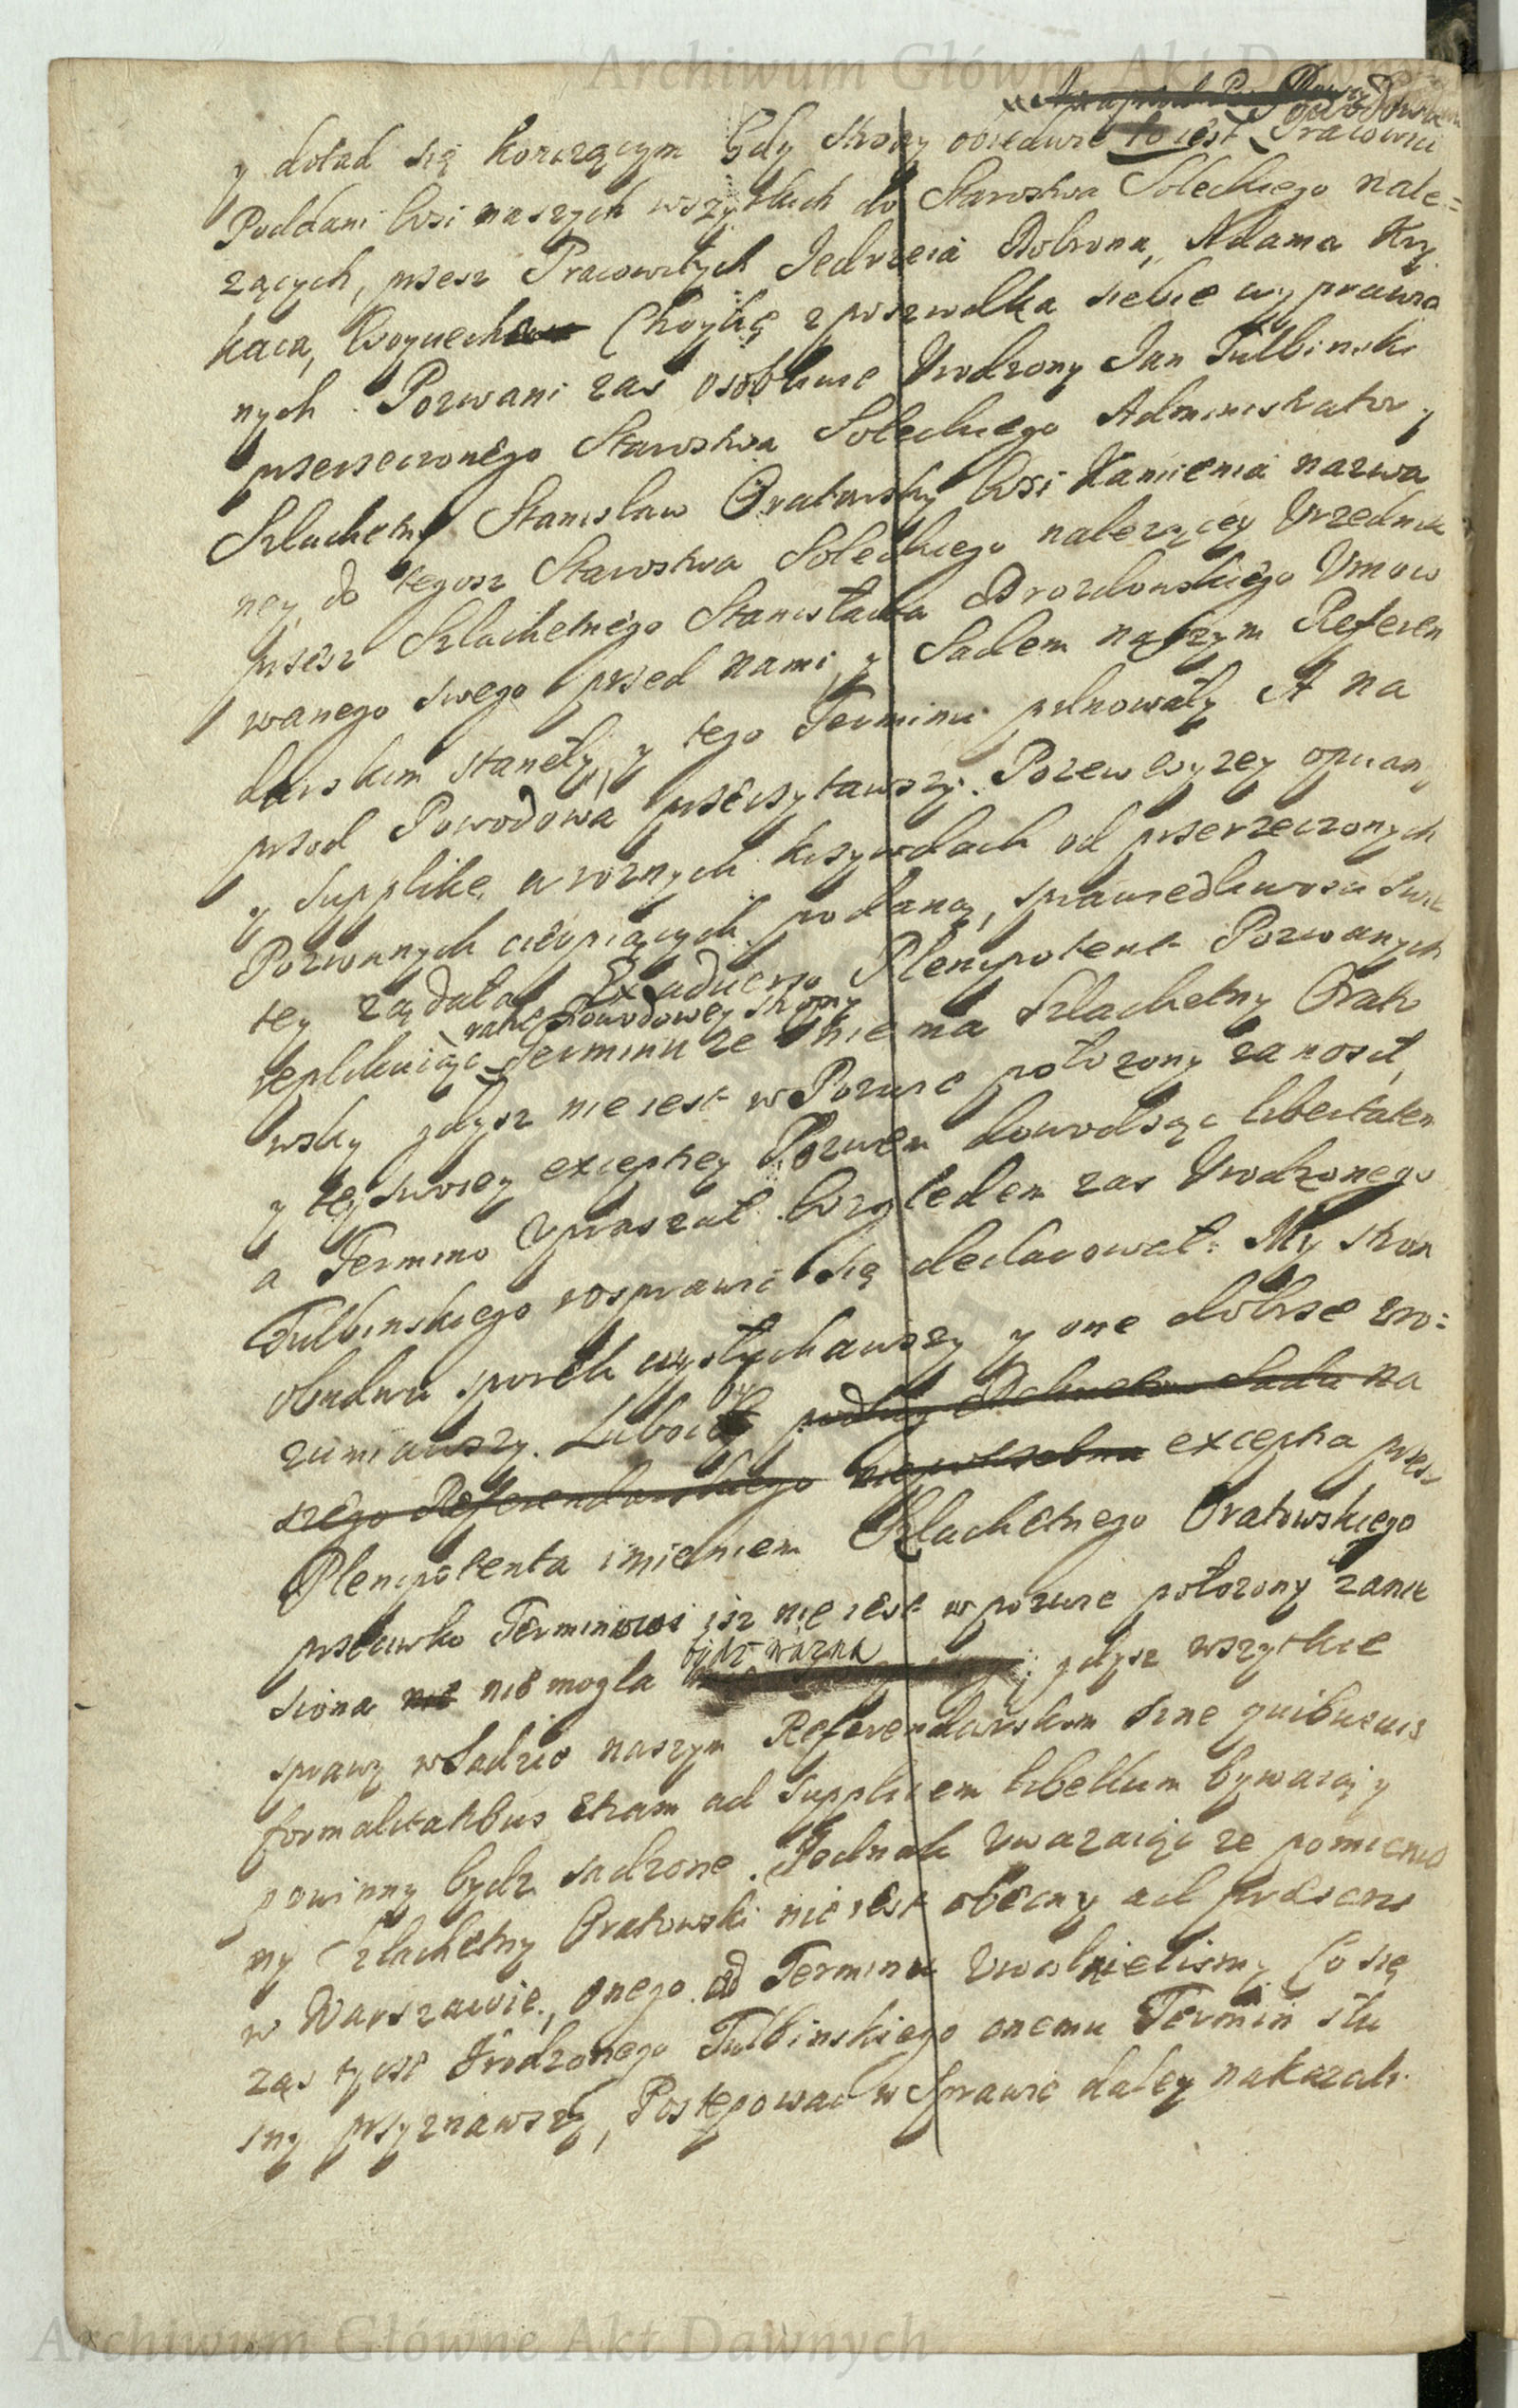 Archiwum Główne Akt Dawnych
Powodowa
y dotad się konczącym Gdy Strony obiedwie to iest Pracowici
Poddani Wsi naszych wszytkich do Starostwa Soleckiego nale=
zących, przez Pracowitych Jedrzeia Dobrona, Adama Kry
kaca, Woyciecha Choyke z posrzodka siebie wyprawio
nych. Pozwani zas osobliwie Urodzony Jan Tulbinski
przerzeczonego Starostwa Soleckiego Administrator y
Szlachetny Stanislaw Oratowsky Wsi Kamienia nazwa
ney, do tegosz Starostwa Soleckiego nalezącey Urzednik
przez Szlachetnego Stanisława Drozdowskiego Umoco
wanego swego przed nami y Sadem naszym Referen
darskim staneły, y tego Terminu pilnowały A na
przod Powodowa przeczytawszy Pozew wyzey opisany
y Supplike, o roznych krzywdach od przerzeczonych
Pozwanych cierpiących podaną, sprawiedliwosci swie
tey ządała, Ex adverso Plenipotent Pozwanych
replikuiąc ratione Powodowey Strony Terminu ze nie ma Szlachetny Orato
wsky gdysz nie iest w Pozwie połozony zanosił,
y tey swoiey excepcyey Pozwem dowodząc libertatem
a Termino upraszał. Względem zas Urodzonego
Tulbinskiego rosprawić się declarował: My stron
obudwu sporek wysłuchawszy y one dobrze zro=
zumiawszy. Luboby podług Dekretow Sadu na
szego Referendarskiego niepotrzebna exceptia przez
Plenipotenta imieniem Szlachetnego Oratowskiego
przeciwko Terminowi isz nie iest w pozwie połozony zanie
siona nie niemogla bydz wazna gdysz wszytkie
sprawy w Sadzie naszym Referendarskim sine quibusvis
formalitatibus etiam ad supplicem libellum bywaią y
powinny bydz sadzone. Jednak Uwazaiąc ze pomienio
ny Szlachetny Oratowski nie iest obecny ad praesens
w Warszawie, onego od Terminu Uwolnielismy Co się
zas tycze Urodzonego Tulbinskiego onemu Termin słu
szny przyznawszy, Postępować w Sprawie daley nakazali
Archiwum Główne Akt Dawnych